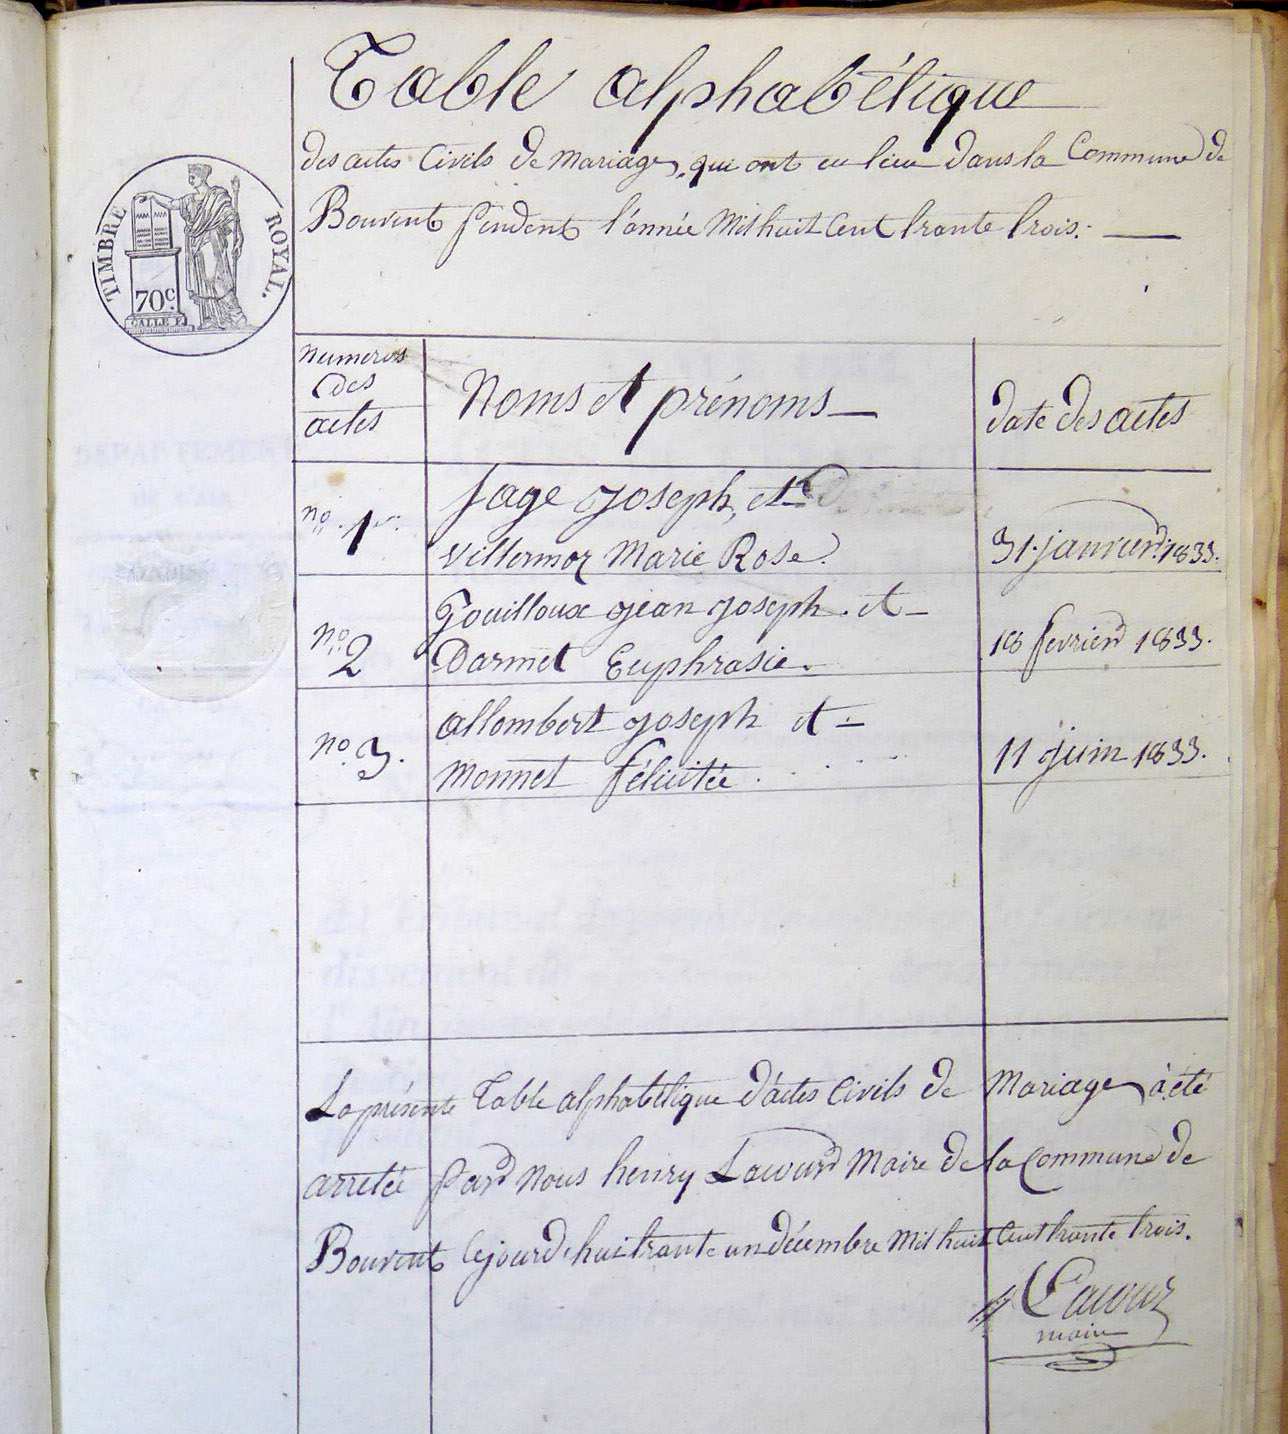 Table alphabétique
des actes Civils de Mariage, qui ont eu lieu dans la Commune de
Bouvent pendent l'année Mil huit Cent trante trois.
TIMBRE ROYAL.
70c.
numeros
des
actes
Noms et prénoms
date des actes
no. 1er.
Sage Joseph, et
Villermoz Marie Rose.
31. janvier. 1833.
no. 2
Gouilloux Jean Joseph. et
Darmet Euphrasie.
18 fevrier 1833.
no. 3.
Allombert Joseph et
Monnet félicitée
11 juin 1833.
La présente Table alphabétique d'actes Civils de Mariage à été
arretée par Nous henry Lacour Maire de la Commune de
Bouvent le jourd'hui trante un décembre Mil huit Cent trante trois.
Lacour
maire